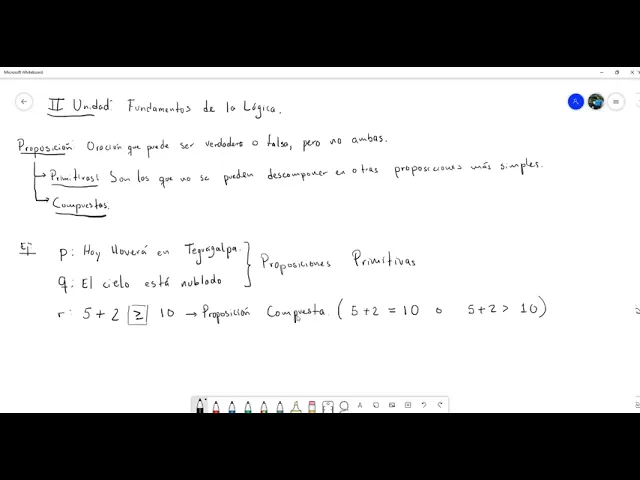 Microsoft Whiteboard
II Unidad: Fundamentos de la Lógica.
Proposición: Oración que puede ser verdadera o falsa, pero no ambas.
→ Primitivas: Son las que no se pueden descomponer en otras proposiciones más simples.
→ Compuestas.
Ej
p: Hoy lloverá en Tegucigalpa.
q: El cielo está nublado
Proposiciones Primitivas
r: 5+2 ≥ 10 → Proposición Compuesta (5+2 = 10 o 5+2 > 10)